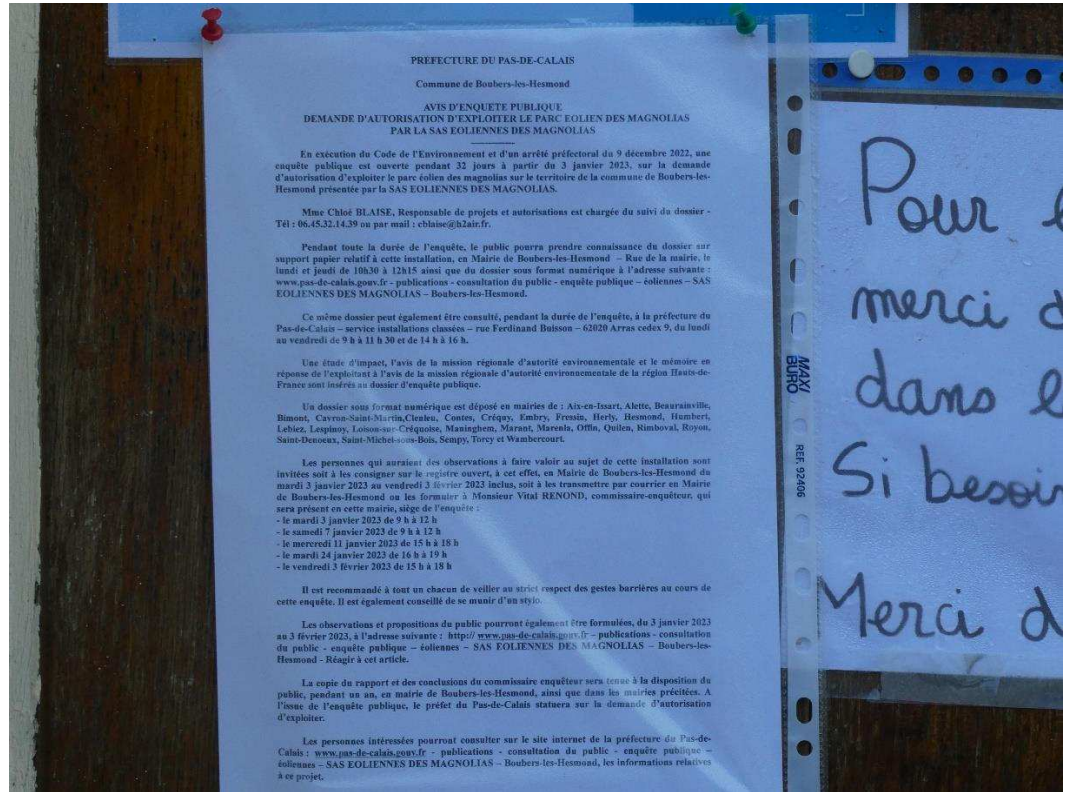 PREFECTURE DU PAS-DE-CALAIS
Commune de Boubers-les-Hesmond
AVIS D'ENQUETE PUBLIQUE
DEMANDE D'AUTORISATION D'EXPLOITER LE PARC EOLIEN DES MAGNOLIAS
PAR LA SAS EOLIENNES DES MAGNOLIAS
En exécution du Code de l'Environnement et d'un arrêté préfectoral du 9 décembre 2022, une
enquête publique est ouverte pendant 32 jours à partir du 3 janvier 2023, sur la demande
d'autorisation d'exploiter le parc éolien des magnolias sur le territoire de la commune de Boubers-les-
Hesmond présentée par la SAS EOLIENNES DES MAGNOLIAS.
Mme Chloé BLAISE, Responsable de projets et autorisations est chargée du suivi du dossier -
Tél : 06.45.32.14.39 ou par mail : cblaise@h2air.fr.
Pendant toute la durée de l'enquête, le public pourra prendre connaissance du dossier sur
support papier relatif à cette installation, en Mairie de Boubers-les-Hesmond – Rue de la mairie, le
lundi et jeudi de 10h30 à 12h15 ainsi que du dossier sous format numérique à l'adresse suivante :
www.pas-de-calais.gouv.fr - publications - consultation du public - enquête publique – éoliennes – SAS
EOLIENNES DES MAGNOLIAS – Boubers-les-Hesmond.
Ce même dossier peut également être consulté, pendant la durée de l'enquête, à la préfecture du
Pas-de-Calais – service installations classées – rue Ferdinand Buisson – 62020 Arras cedex 9, du lundi
au vendredi de 9 h à 11 h 30 et de 14 h à 16 h.
Une étude d'impact, l'avis de la mission régionale d'autorité environnementale et le mémoire en
réponse de l'exploitant à l'avis de la mission régionale d'autorité environnementale de la région Hauts-de-
France sont insérés au dossier d'enquête publique.
Un dossier sous format numérique est déposé en mairies de : Aix-en-Issart, Alette, Beaurainville,
Bimont, Cavron-Saint-Martin,Clenleu, Contes, Créquy, Embry, Fressin, Herly, Hesmond, Humbert,
Lebiez, Lespinoy, Loison-sur-Créquoise, Maninghem, Marant, Marenla, Offin, Quilen, Rimboval, Royon,
Saint-Denoeux, Saint-Michel-sous-Bois, Sempy, Torcy et Wambercourt.
Les personnes qui auraient des observations à faire valoir au sujet de cette installation sont
invitées soit à les consigner sur le registre ouvert, à cet effet, en Mairie de Boubers-les-Hesmond du
mardi 3 janvier 2023 au vendredi 3 février 2023 inclus, soit à les transmettre par courrier en Mairie
de Boubers-les-Hesmond ou les formuler à Monsieur Vital RENOND, commissaire-enquêteur, qui
sera présent en cette mairie, siège de l'enquête :
- le mardi 3 janvier 2023 de 9 h à 12 h
- le samedi 7 janvier 2023 de 9 h à 12 h
- le mercredi 11 janvier 2023 de 15 h à 18 h
- le mardi 24 janvier 2023 de 16 h à 19 h
- le vendredi 3 février 2023 de 15 h à 18 h
Il est recommandé à tout un chacun de veiller au strict respect des gestes barrières au cours de
cette enquête. Il est également conseillé de se munir d'un stylo.
Les observations et propositions du public pourront également être formulées, du 3 janvier 2023
au 3 février 2023, à l'adresse suivante : http:// www.pas-de-calais.gouv.fr - publications - consultation
du public - enquête publique – éoliennes – SAS EOLIENNES DES MAGNOLIAS – Boubers-les-
Hesmond - Réagir à cet article.
La copie du rapport et des conclusions du commissaire enquêteur sera tenue à la disposition du
public, pendant un an, en mairie de Boubers-les-Hesmond, ainsi que dans les mairies précitées. A
l'issue de l'enquête publique, le préfet du Pas-de-Calais statuera sur la demande d'autorisation
d'exploiter.
Les personnes intéressées pourront consulter sur le site internet de la préfecture du Pas-de-
Calais : www.pas-de-calais.gouv.fr - publications - consultation du public - enquête publique –
éoliennes – SAS EOLIENNES DES MAGNOLIAS – Boubers-les-Hesmond, les informations relatives
à ce projet.
MAXI
BURO
REF. 92406
Pour
merci
dans
Si besoin
Merci